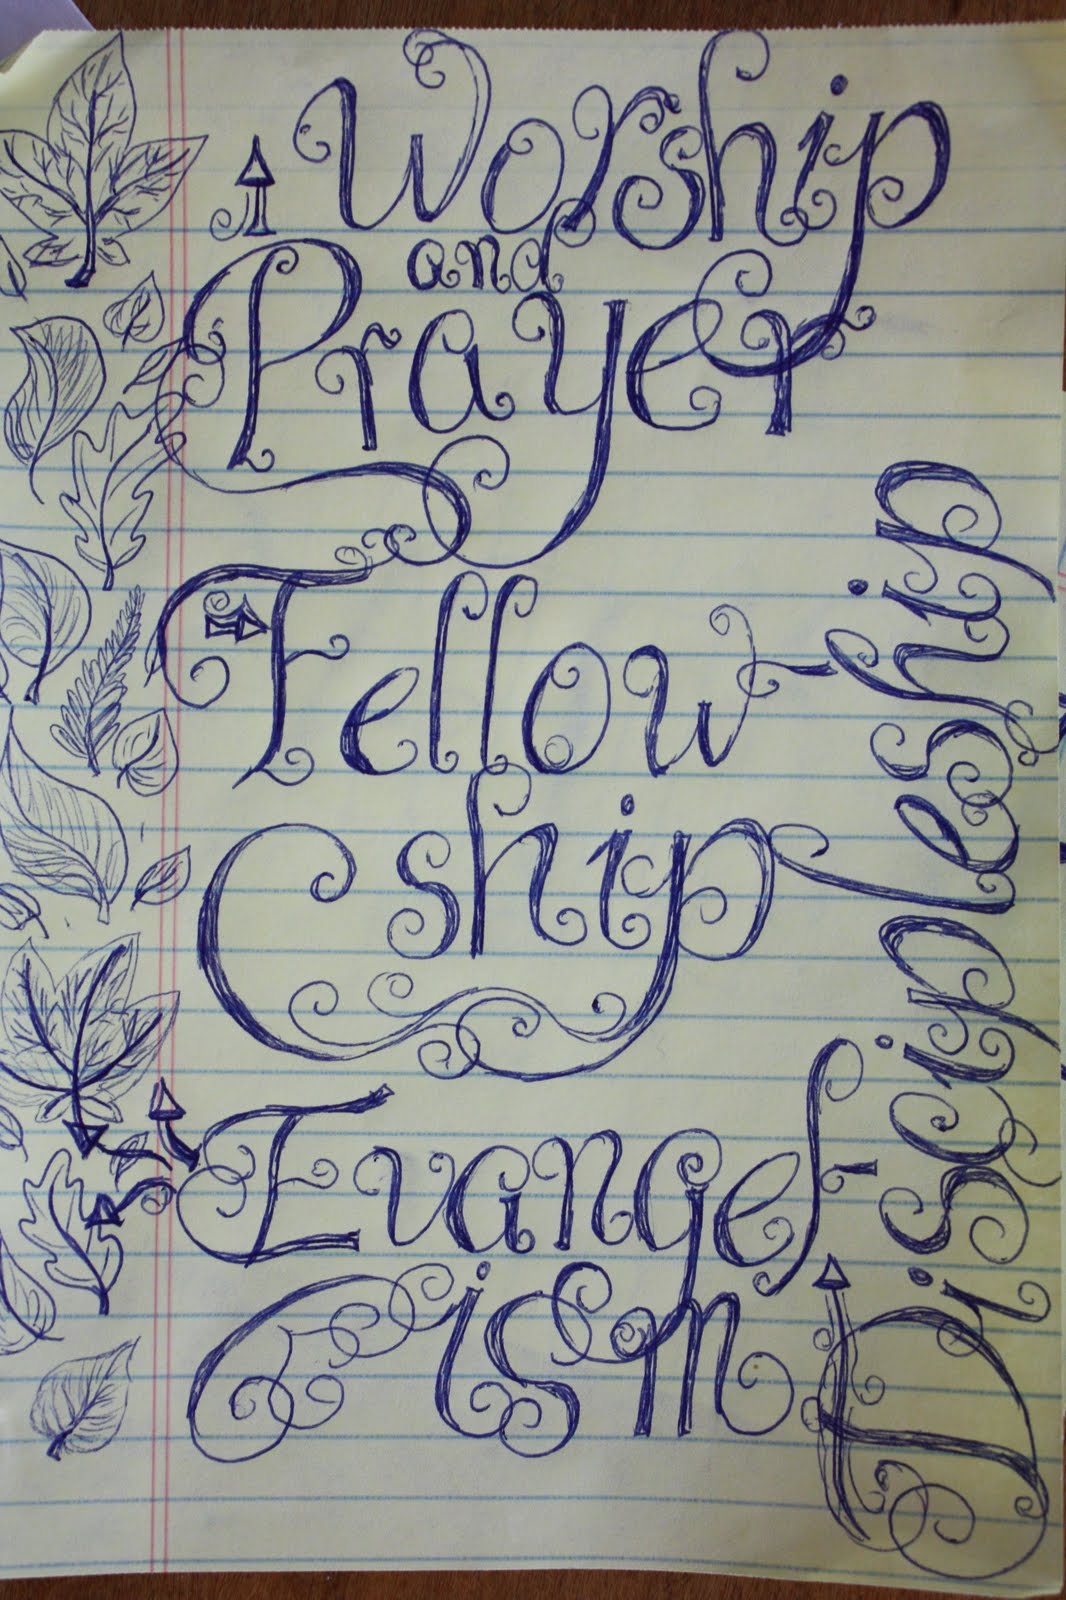 Worship
and
Prayer
Fellow-
ship
Evangel-
ism
Discipleship